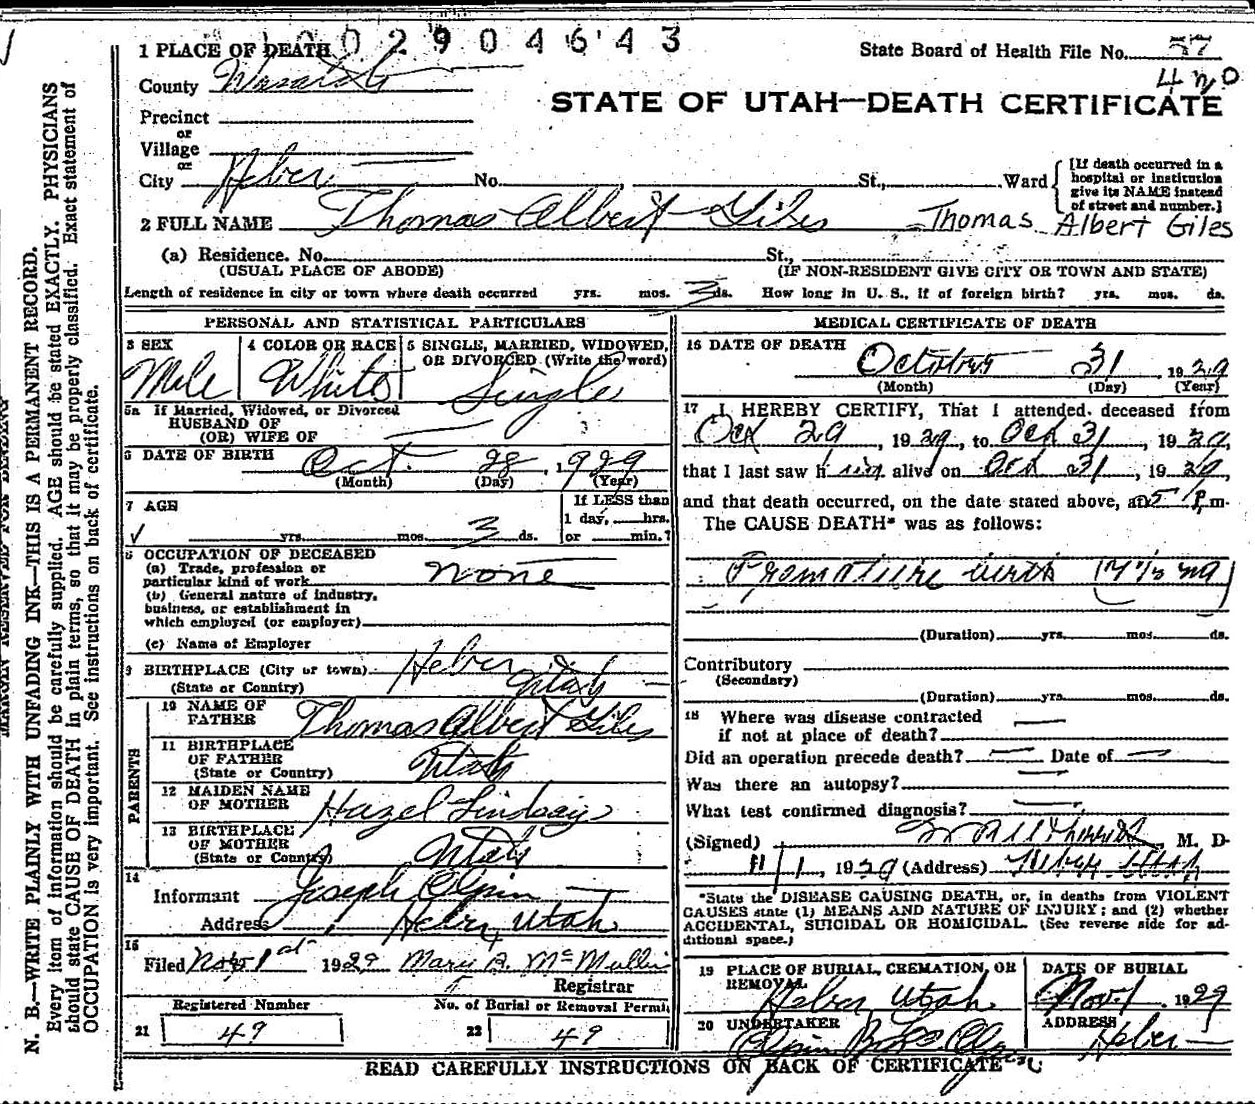 1002904643
1 PLACE OF DEATH
State Board of Health File No. 57
County Wasatch
STATE OF UTAH—DEATH CERTIFICATE
Precinct
or
Village
or
City Heber No. St., Ward
[If death occurred in a
hospital or institution
give its NAME instead
of street and number.]
2 FULL NAME Thomas Albert Giles Thomas Albert Giles
(a) Residence. No. St.,
(USUAL PLACE OF ABODE) (IF NON-RESIDENT GIVE CITY OR TOWN AND STATE)
Length of residence in city or town where death occurred yrs. mos. 3 ds. How long in U. S., if of foreign birth? yrs. mos. ds.
PERSONAL AND STATISTICAL PARTICULARS
3 SEX
Male
4 COLOR OR RACE
White
5 SINGLE, MARRIED, WIDOWED,
OR DIVORCED (Write the word)
Single
5a If Married, Widowed, or Divorced
HUSBAND OF
(OR) WIFE OF
6 DATE OF BIRTH Oct. 28, 1929
(Month) (Day) (Year)
7 AGE
yrs. mos. 3 ds.
If LESS than
1 day, hrs.
or min.?
8 OCCUPATION OF DECEASED
(a) Trade, profession or
particular kind of work none
(b) General nature of industry,
business, or establishment in
which employed (or employer)
(c) Name of Employer
9 BIRTHPLACE (City or town) Heber
(State or Country) Utah
PARENTS
10 NAME OF
FATHER Thomas Albert Giles
11 BIRTHPLACE
OF FATHER
(State or Country) Utah
12 MAIDEN NAME
OF MOTHER Hazel Lindsay
13 BIRTHPLACE
OF MOTHER
(State or Country) Utah
14
Informant Joseph Olpin
Address Heber, Utah
15
Filed Nov 1st 1929 Mary A. McMullin
Registrar
Registered Number
21 49
No. of Burial or Removal Permit
22 49
MEDICAL CERTIFICATE OF DEATH
16 DATE OF DEATH
October 31 1929
(Month) (Day) (Year)
17 I HEREBY CERTIFY, That I attended deceased from
Oct 29, 1929, to Oct 31, 1929,
that I last saw him alive on Oct 31, 1929,
and that death occurred, on the date stated above, at 5 P. m.
The CAUSE DEATH* was as follows:
Premature birth
(Duration) yrs. mos. ds.
Contributory
(Secondary)
(Duration) yrs. mos. ds.
18 Where was disease contracted
if not at place of death?
Did an operation precede death? Date of
Was there an autopsy?
What test confirmed diagnosis?
(Signed) M. D.
11/1, 1929 (Address) Heber Utah
*State the DISEASE CAUSING DEATH, or, in deaths from VIOLENT
CAUSES state (1) MEANS AND NATURE OF INJURY; and (2) whether
ACCIDENTAL, SUICIDAL OR HOMICIDAL. (See reverse side for ad-
ditional space.)
19 PLACE OF BURIAL, CREMATION, OR
REMOVAL
Heber, Utah
DATE OF BURIAL
Nov. 1, 1929
20 UNDERTAKER
ADDRESS
Heber
READ CAREFULLY INSTRUCTIONS ON BACK OF CERTIFICATE
N. B.—WRITE PLAINLY WITH UNFADING INK—THIS IS A PERMANENT RECORD.
Every item of information should be carefully supplied. AGE should be stated EXACTLY. PHYSICIANS
should state CAUSE OF DEATH in plain terms, so that it may be properly classified. Exact statement of
OCCUPATION is very important. See instructions on back of certificate.